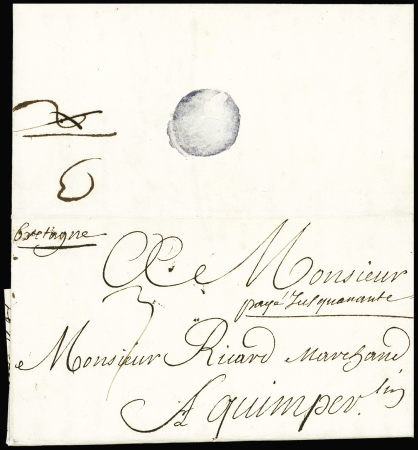 bretagne
A Monsieur
payé Jusqu nante
Monsieur Ricard Marchand
A quimper